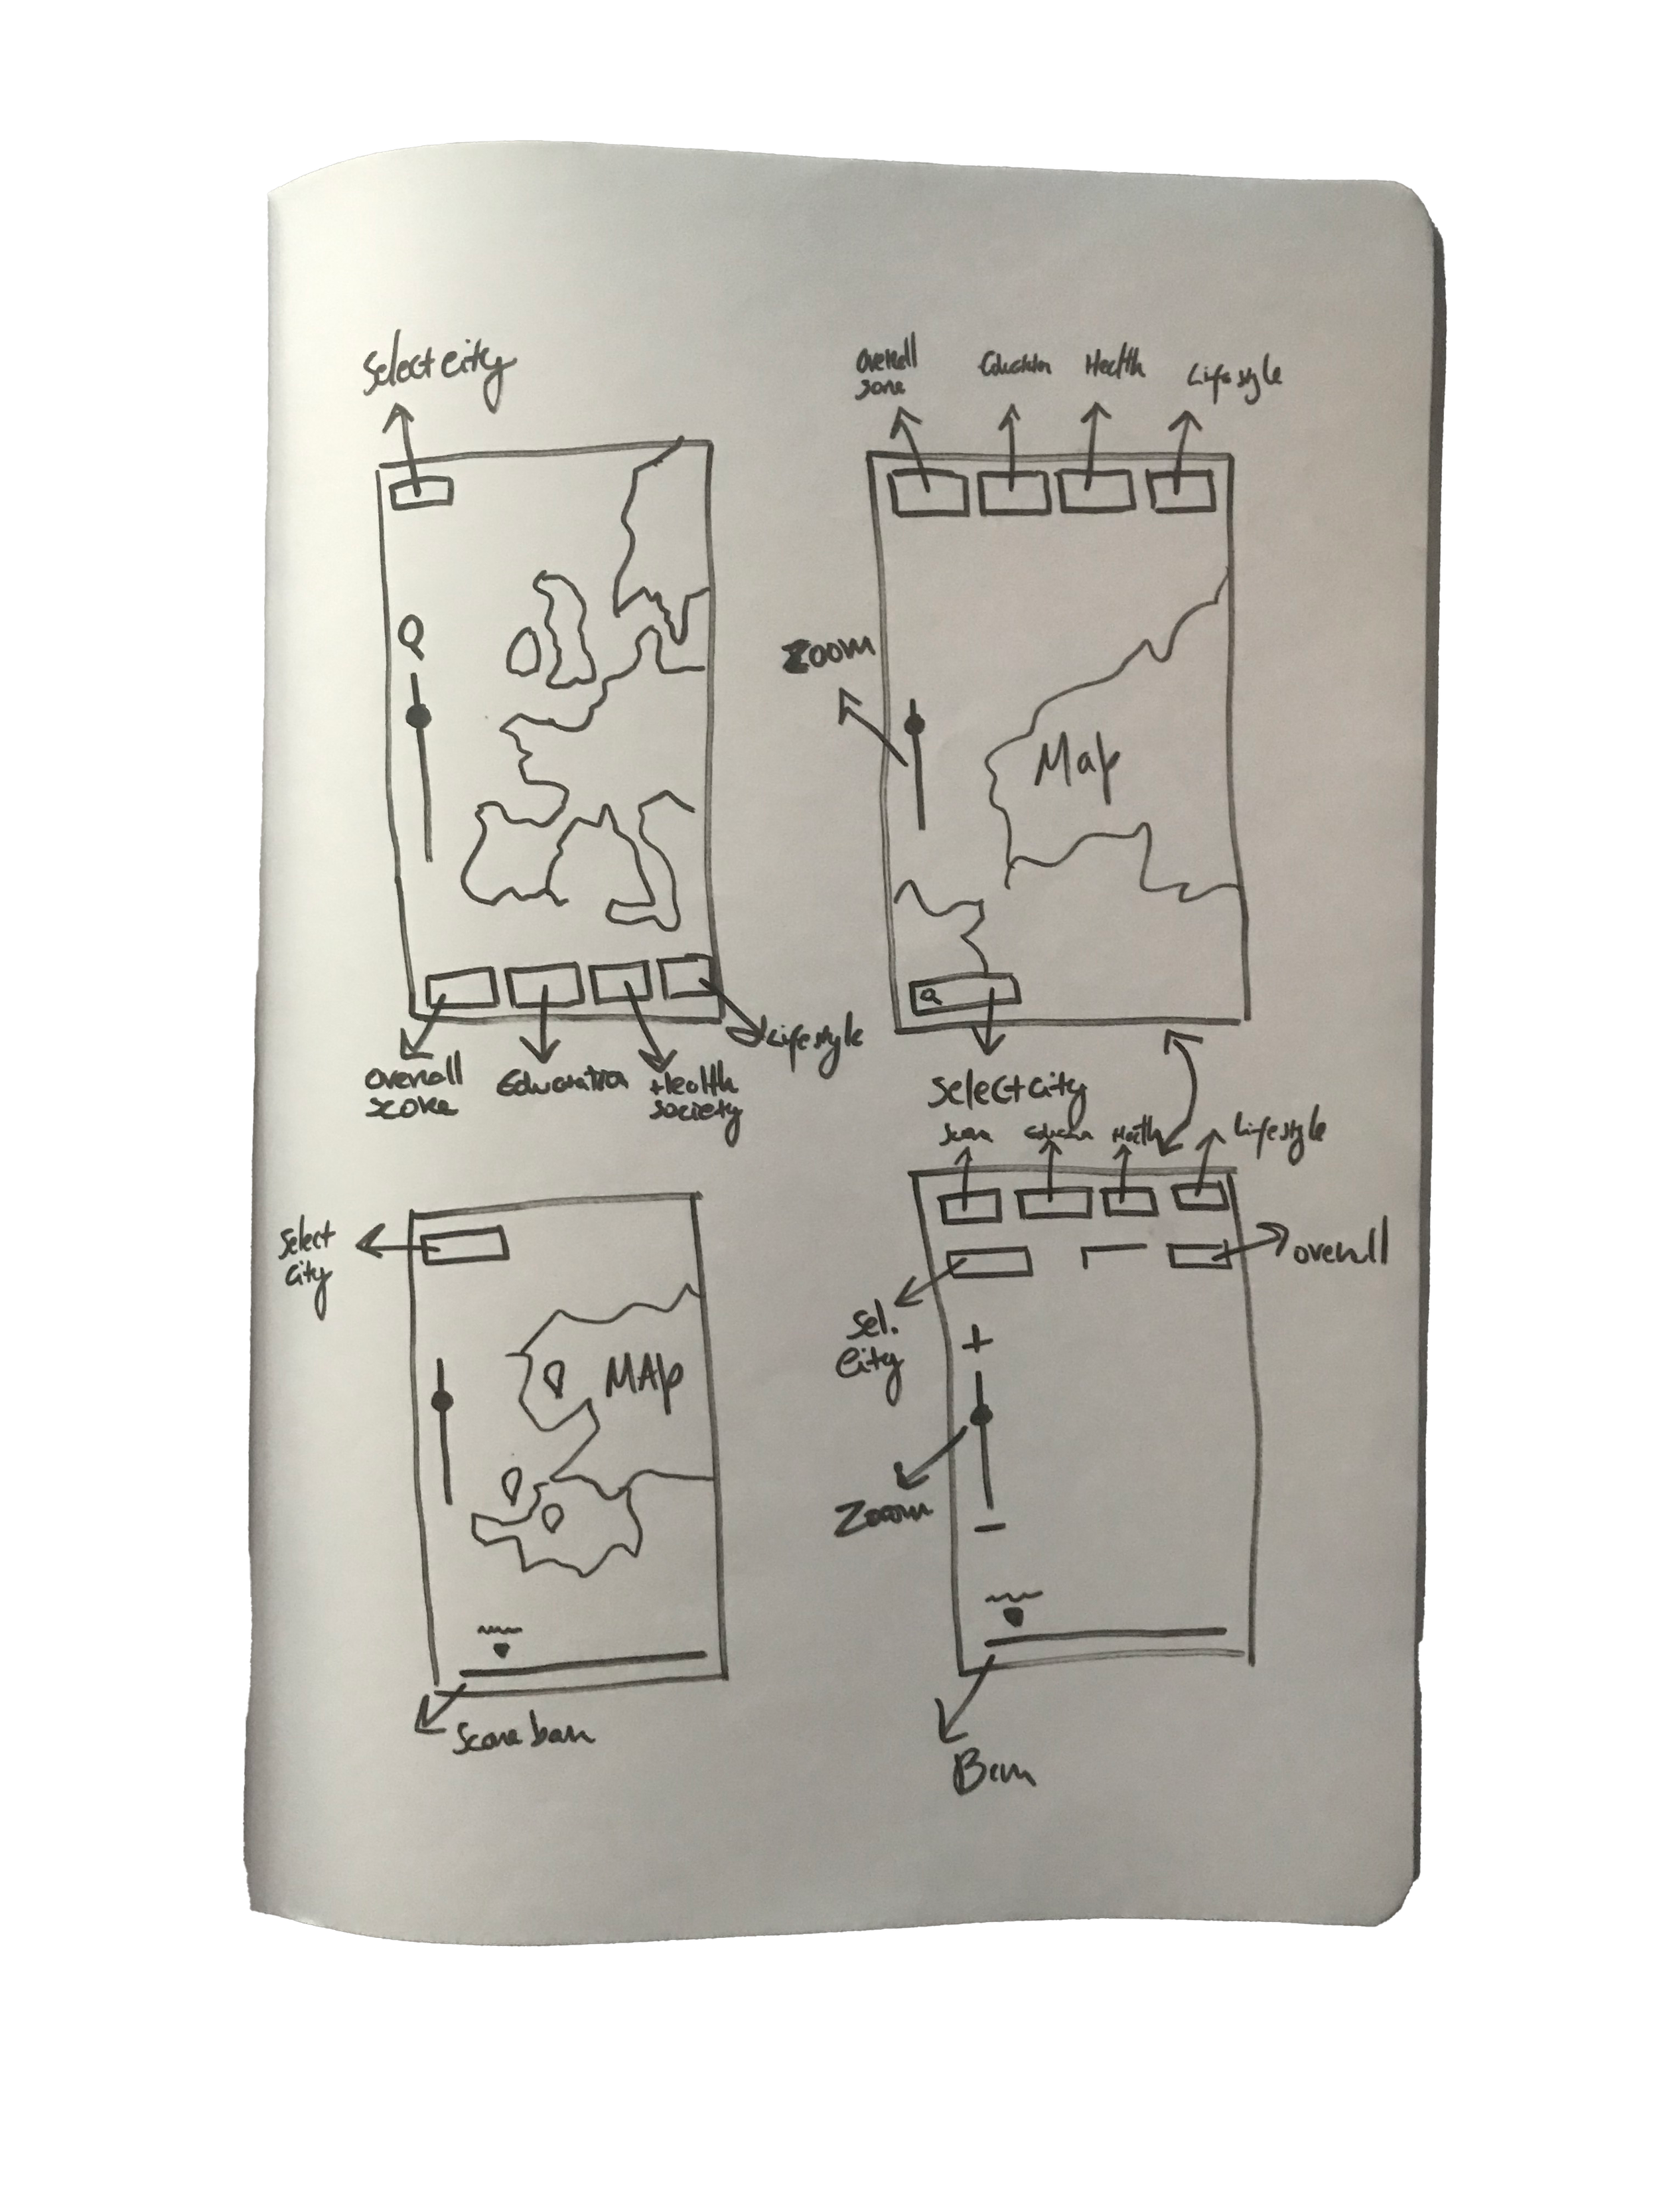 Select city
Overall
score
Education
Health
society
Lifestyle
Overall
Education
Health
Lifestyle
Zoom
Map
Select city
Select
city
MAp
Score bar
Education
Health
Lifestyle
overall
Sel.
City
+
Zoom
-
Bar